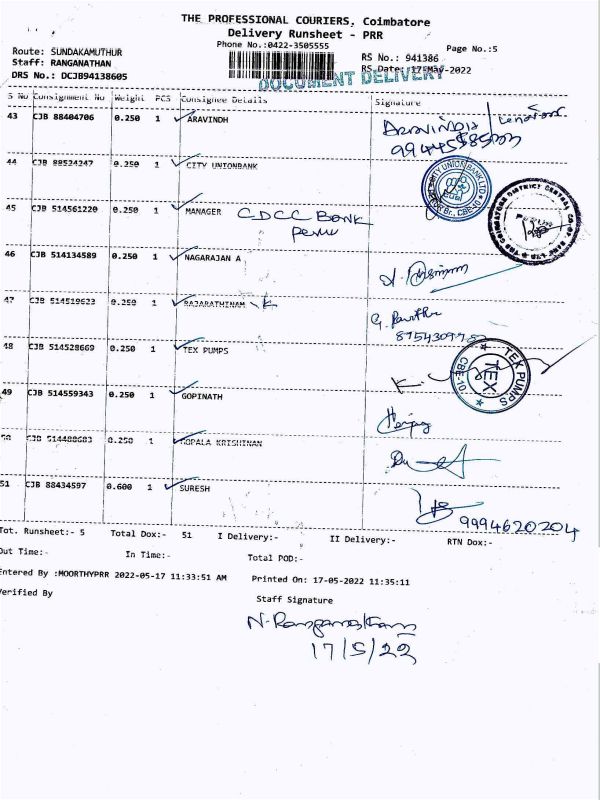 THE PROFESSIONAL COURIERS, Coimbatore
Delivery Runsheet - PRR
Phone No.:0422-3505555
Page No.:5
Route: SUNDAKAMUTHUR
RS No.: 941386
Staff: RANGANATHAN
RS Date: 17-May-2022
DRS No.: DCJB94138605
DOCUMENT DELIVERY
S No Consignment No Weight PCS Consignee Details Signature
43 CJB 88404706 0.250 1 ARAVINDH
44 CJB 88524247 0.250 1 CITY UNIONBANK
CITY UNION BANK LTD
45 CJB 514561220 0.250 1 MANAGER CDCC BANK
46 CJB 514134589 0.250 1 NAGARAJAN A
47 CJB 514519623 0.250 1 RAJARATHINAM K
48 CJB 514528669 0.250 1 TEX PUMPS
TEX PUMPS
CBE-10
TEX
49 CJB 514559343 0.250 1 GOPINATH
50 CJB 514488683 0.250 1 GOPALA KRISHNAN
51 CJB 88434597 0.600 1 SURESH
9994620204
Tot. Runsheet:- 5 Total Dox:- 51 I Delivery:- II Delivery:- RTN Dox:-
Out Time:- In Time:- Total POD:-
Entered By :MOORTHYPRR 2022-05-17 11:33:51 AM Printed On: 17-05-2022 11:35:11
Verified By Staff Signature
N. Ranganathan
17/5/22